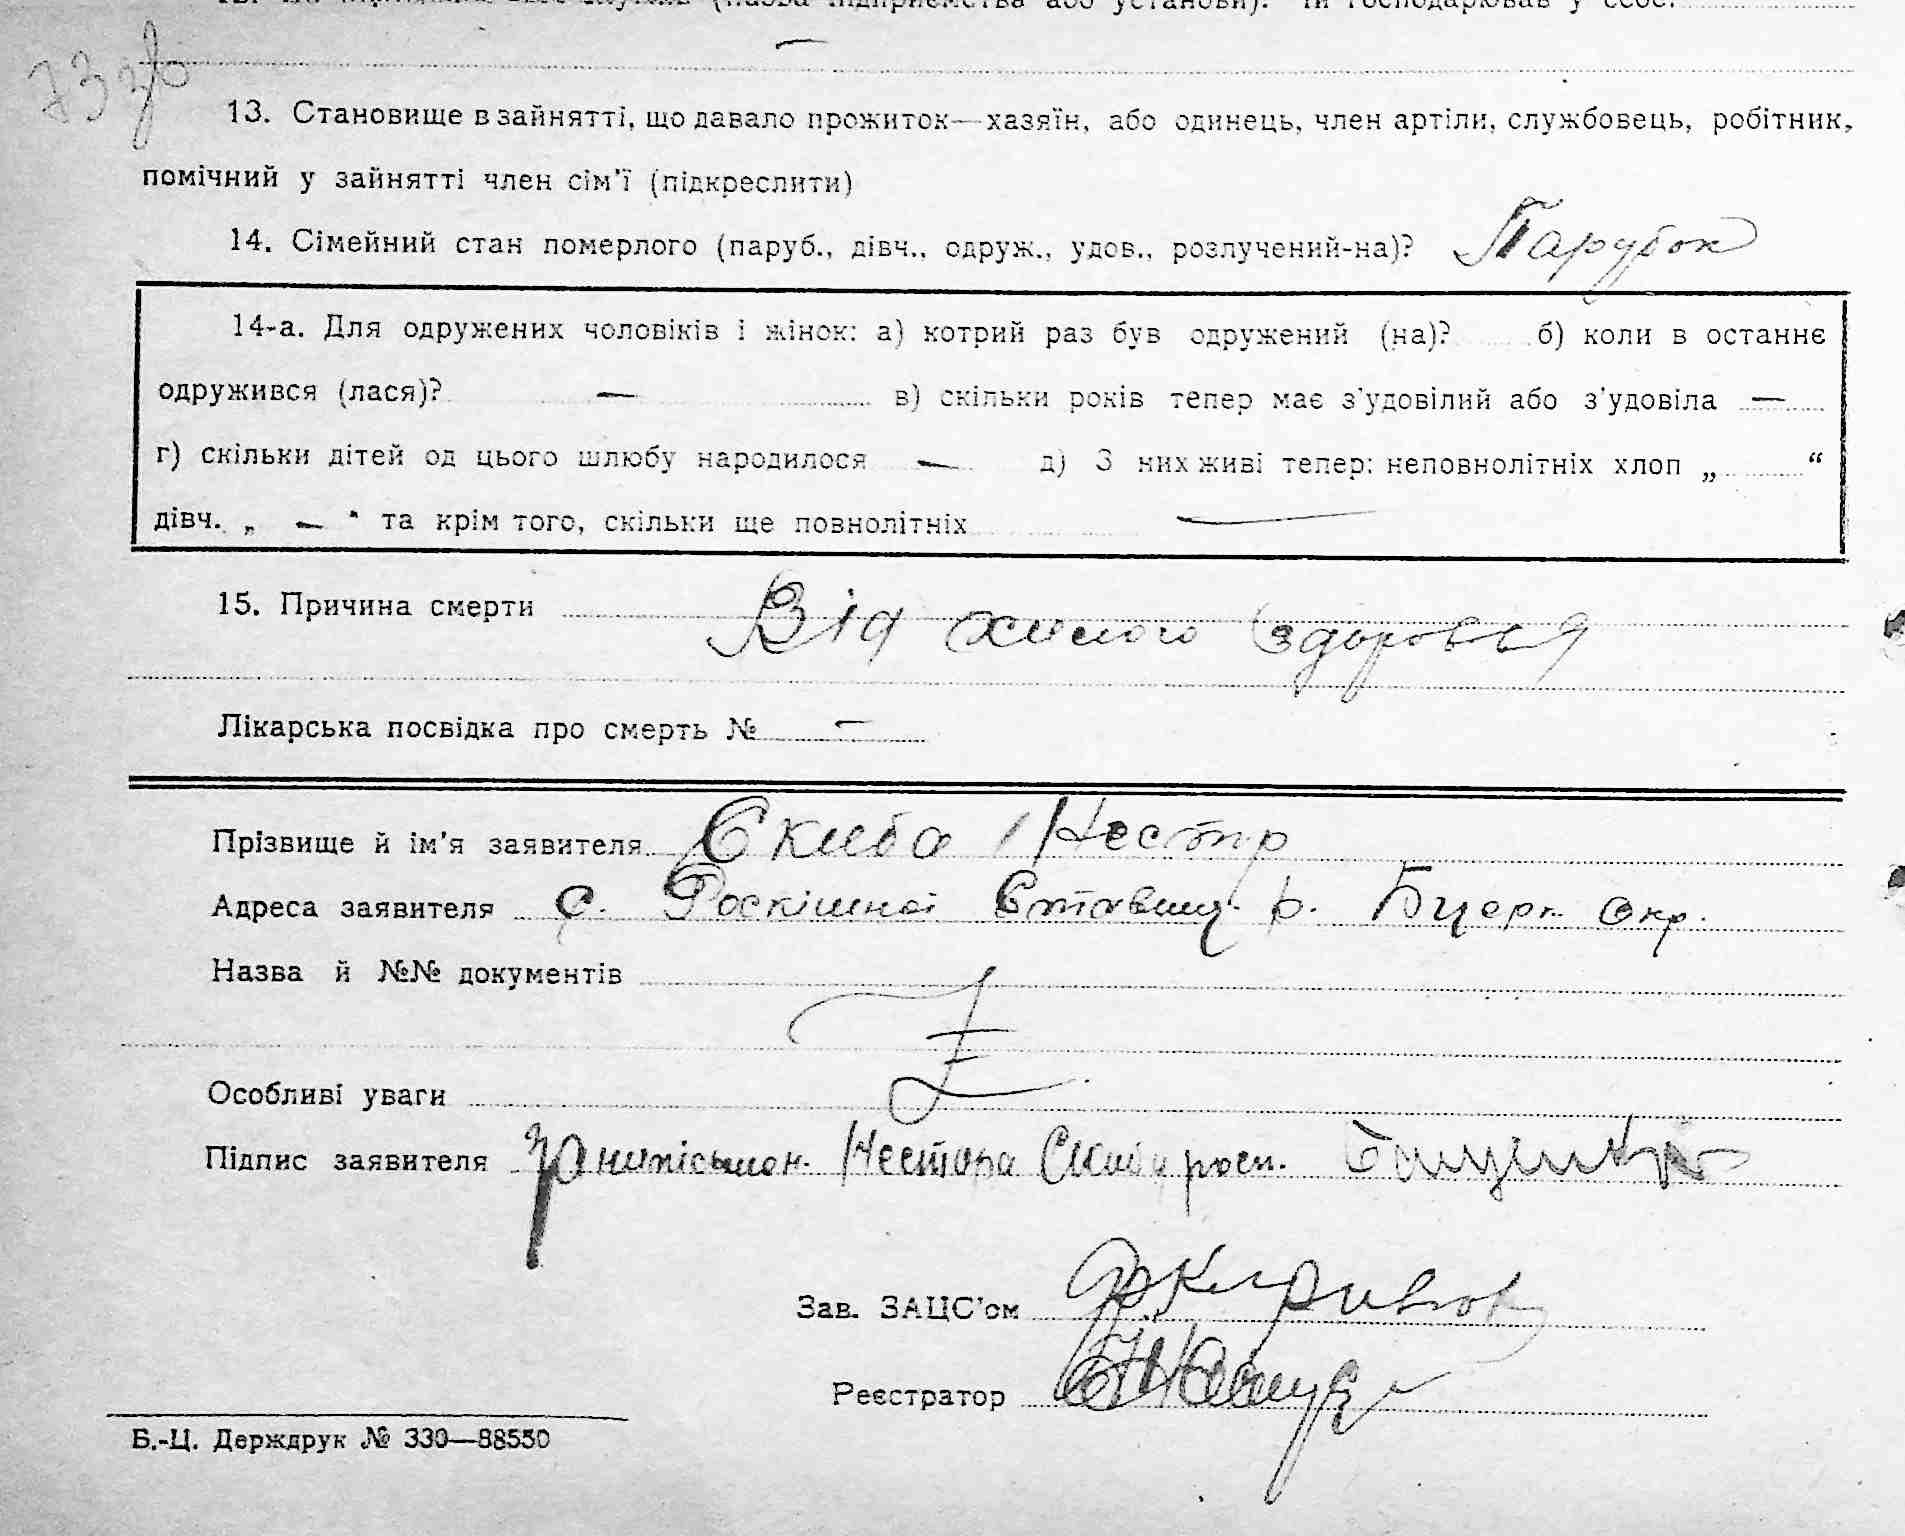 13. Становище в зайнятті, що давало прожиток—хазяїн, або одинець, член артіли, службовець, робітник,
помічний у зайнятті член сім'ї (підкреслити)
14. Сімейний стан померлого (паруб., дівч., одруж., удов., розлучений-на)? Парубок
14-а. Для одружених чоловіків і жінок: а) котрий раз був одружений (на)? б) коли в останнє
одружився (лася)? — в) скільки років тепер має з'удовілий або з'удовіла —
г) скільки дітей од цього шлюбу народилося — д) З них живі тепер: неповнолітніх хлоп „ “
дівч. „ — “ та крім того, скільки ще повнолітніх —
15. Причина смерти Від хилого здоровья
Лікарська посвідка про смерть № —
Прізвище й ім'я заявителя Скиба Нестір
Адреса заявителя с. Роскішної Ставищ. р. Бцерк. окр.
Назва й №№ документів
Особливі уваги
Підпис заявителя За неписьмен. Нестора Скибу росп.
Зав. ЗАЦС'ом
Реєстратор
Б.-Ц. Держдрук № 330—88550